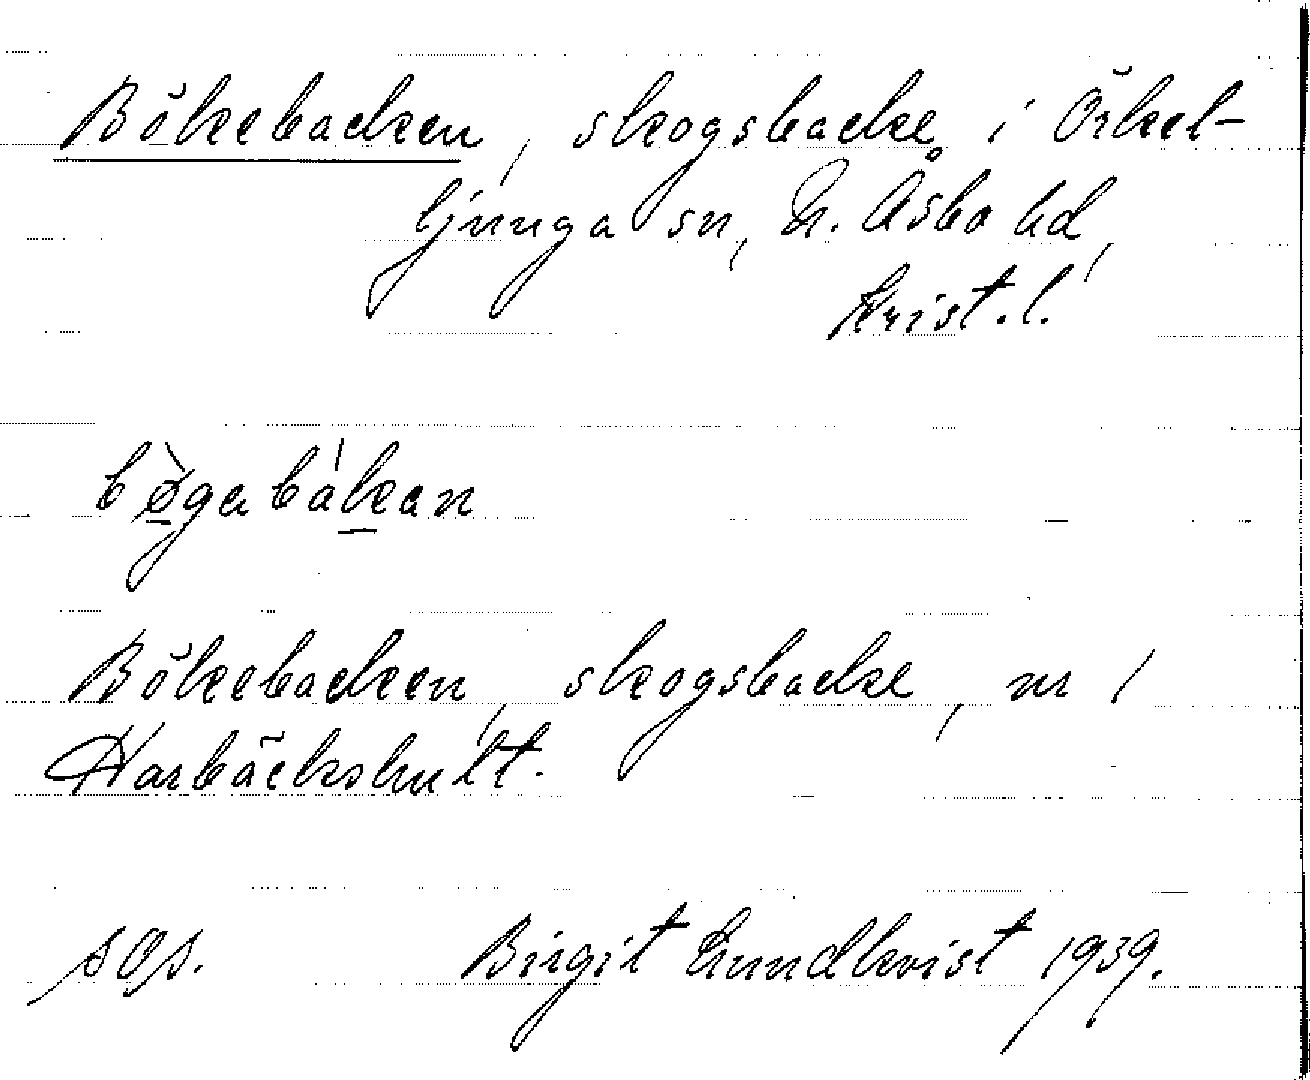 Bökebacken, skogsbacke i Örkel-
ljunga sn, N. Åsbo hd,
Krist. l.
bø̀gabàkan
Bökebacken, skogsbacke, nr 1
Harbäckshult.
SOS. Birgit Lundkvist 1939.